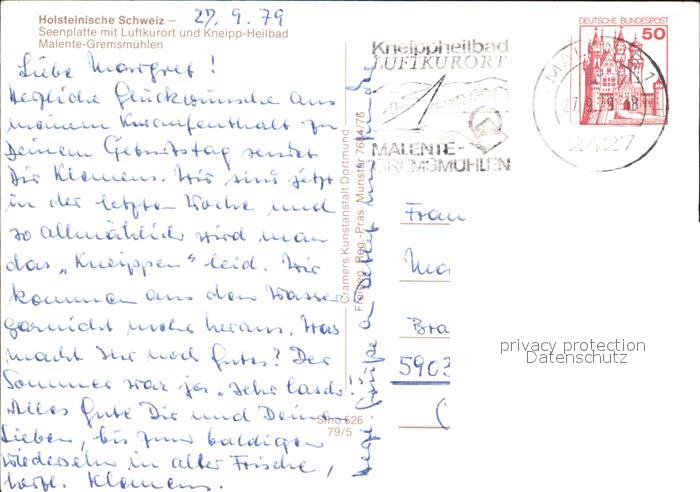 Holsteinische Schweiz –
Seenplatte mit Luftkurort und Kneipp-Heilbad
Malente-Gremsmühlen
27.9.79
Liebe Margret!
Herzliche Glückwünsche aus
meinem Kuraufenthalt zu
Deinem Geburtstag sendet
Dir Klemens. Wir sind jetzt
in der letzten Woche und
so allmählich wird man
das „Kneippen" leid. Wir
kommen aus dem Wasser
garnicht mehr heraus. Was
macht Ihr noch Gutes? Der
Sommer war ja „sehr lasch"!
Alles Gute Dir und Deinen
Lieben, bis zum baldigen
Wiedersehn in alter Frische,
herzl. Klemens.
Grüße an Detlef und
Cramers Kunstanstalt Dortmund
Freigeg. Reg.-Präs. Münster
79/5
Kneippheilbad
LUFTKURORT
MALENTE-
GREMSMÜHLEN
DEUTSCHE BUNDESPOST
50
2427
Frau
Ma
Bra
5902
privacy protection
Datenschutz